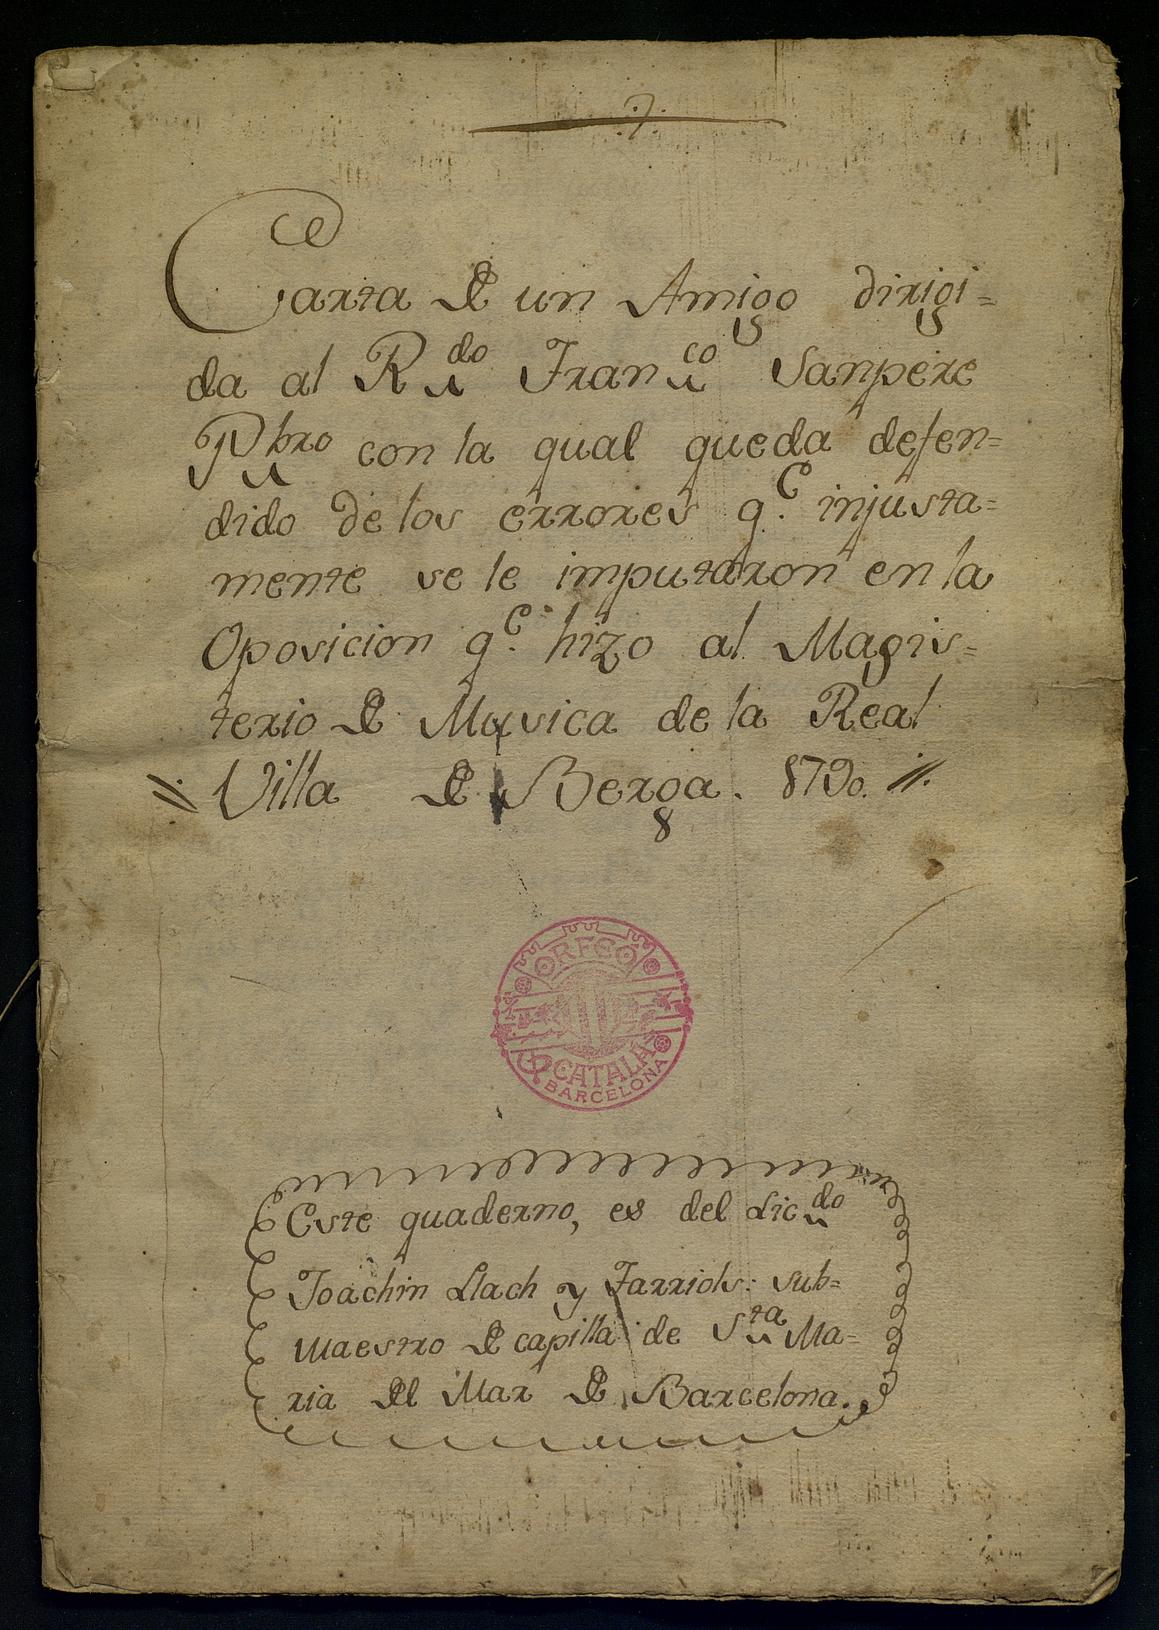 7.
Carta de un Amigo dirigi=
da al R.do Fran.co Sanpere
Pbro con la qual queda defen=
dido de los errores q.e injusta=
mente se le imputaron en la
Oposicion q.e hizo al Magis=
terio de Musica de la Real
Villa de Berga. 1790.
ORFEÓ
CATALÀ
BARCELONA
Este quaderno, es del Lic.do
Joachin Llach y Farriols: sub=
maestro de capilla de S.ta Ma=
ria del Mar de Barcelona.